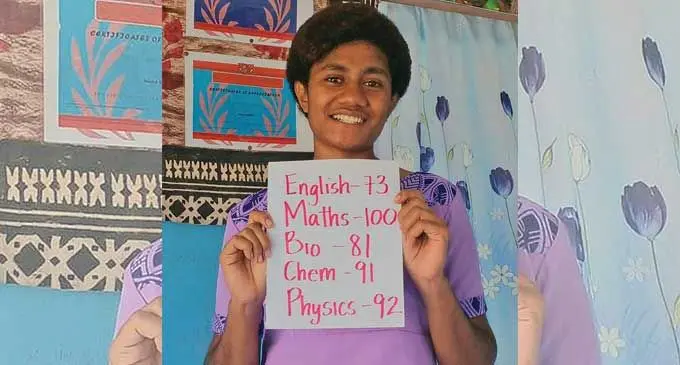 CERTIFICATES OF
English-73
Maths-100
Bio -81
Chem -91
Physics -92